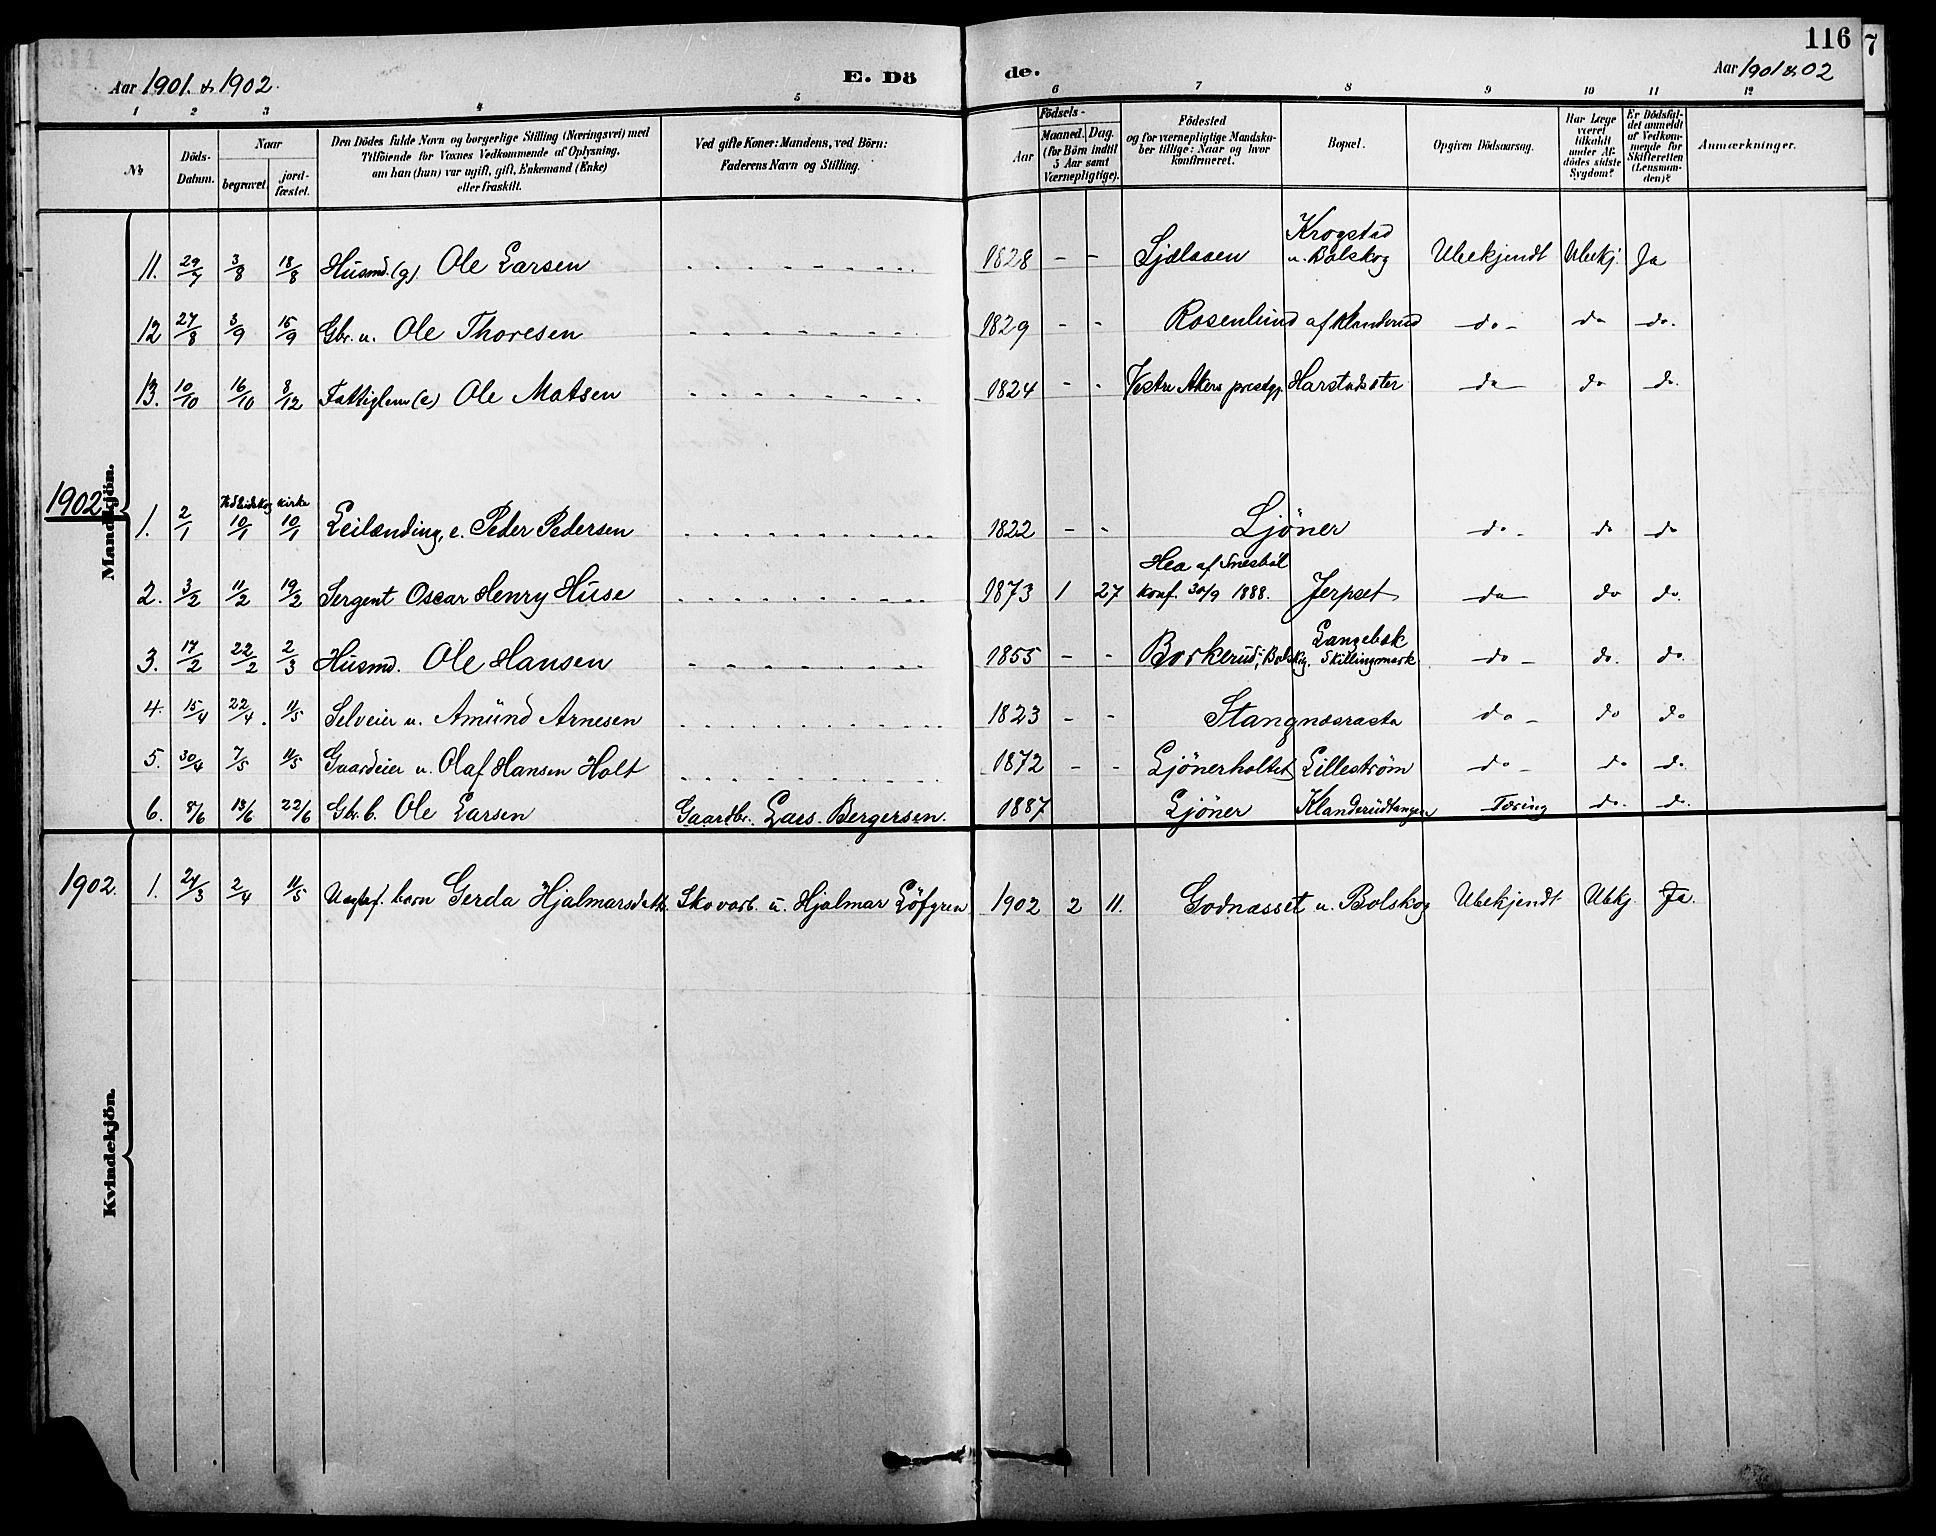 116
7
Aar 1901. & 1902.
E. Dö
de.
Aar 1901 & 02
1 2 3 4 5 6 7 8 9 10 11 12
No
Döds-Datum.
Naar
begravet.
jord-fæstet.
Den Dödes fulde Navn og borgerlige Stilling (Næringsvei) med
Tilföiende for Voxnes Vedkommende af Oplysning,
om han (hun) var ugift, gift, Enkemand (Enke)
eller fraskilt.
Ved gifte Koner: Mandens, ved Börn:
Faderens Navn og Stilling.
Födsels-
Aar
Maaned. Dag.
(for Börn indtil
5 Aar samt
Værnepligtige).
Födested
og for værnepligtige Mandska-
ber tillige: Naar og hvor
konfirmeret.
Bopæl.
Opgiven Dödsaarsag.
Har Læge
været
tilkaldt
under Af-
dödes sidste
Sygdom?
Er Dödsfal-
det anmeldt
af Vedkom-
mende for
Skifteretten
(Lensman-
den)?
Anmærkninger.
Mandkjön.
11. 29/7 3/8 18/8 Husmd. (g). Ole Larsen 1828 - - Sjølaaen Krogstad u. Bolskog Ubekjendt Ubekj. Ja
12 27/8 3/9 15/9 Gbr. u. Ole Thoresen 1829 - - Rosenlund af Klanderud do - do do.
13. 10/10 16/10 8/12 Fattiglem (e) Ole Matsen 1824 - - Vestre Akers prestgj. Harstadsæter do do do.
1902
kirke
1. 2/1 10/1 10/1 Leilænding, e. Peder Pedersen 1822 - - Ljöner do - do do
2. 3/2 11/2 19/2 Sergent Oscar Henry Huse 1873 1 27 Hea af Snesböl konf. 30/9 1888. Jerpset do do do.
3. 17/2 22/2 2/3 Husmd. Ole Hansen 1855 - - Borkerud, Bolskg. Langebæk Skillingsmark do - do. do.
4. 15/4 22/4. 11/5 Selveier u. Amund Arnesen 1823 - - Stangnæsrasta do - do do
5. 30/4 7/5 11/5 Gaardeier u. Olaf Hansen Holt 1872 - - Ljönerholtet Lilleström do - do do.
6. 8/6 13/6 22/6 Gbr. b. Ole Larsen Gaardbr. Lars Bergersen. 1887 Ljöner Klanderudtangen Tæring do. do.
Kvindekjön.
1902. 1. 24/3 2/4 11/5 Uægtef. barn Gerda Hjalmarsdatt. Skovarb. u. Hjalmar Löfgren 1902 2 11. Godnæsset u. Bolskog Ubekjendt Ubkj. Ja.